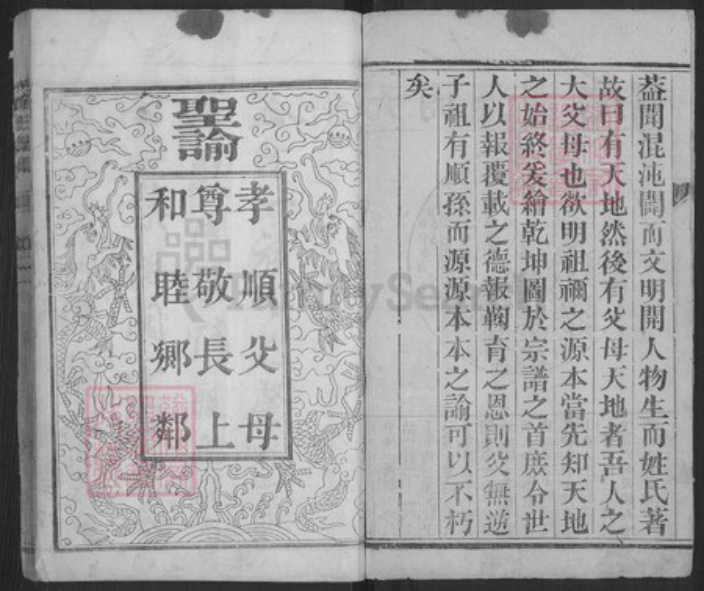 蓋聞混沌闢而文明開人物生而姓氏著
故曰有天地然後有父母天地者吾人之
大父母也欲明祖禰之源本當先知天地
之始終爰繪乾坤圖於宗譜之首庶令世
人以報覆載之德報鞠育之恩則父無逆
子祖有順孫而源源本本之諭可以不朽
矣
聖諭
孝順父母
尊敬長上
和睦鄉鄰
FamilySearch